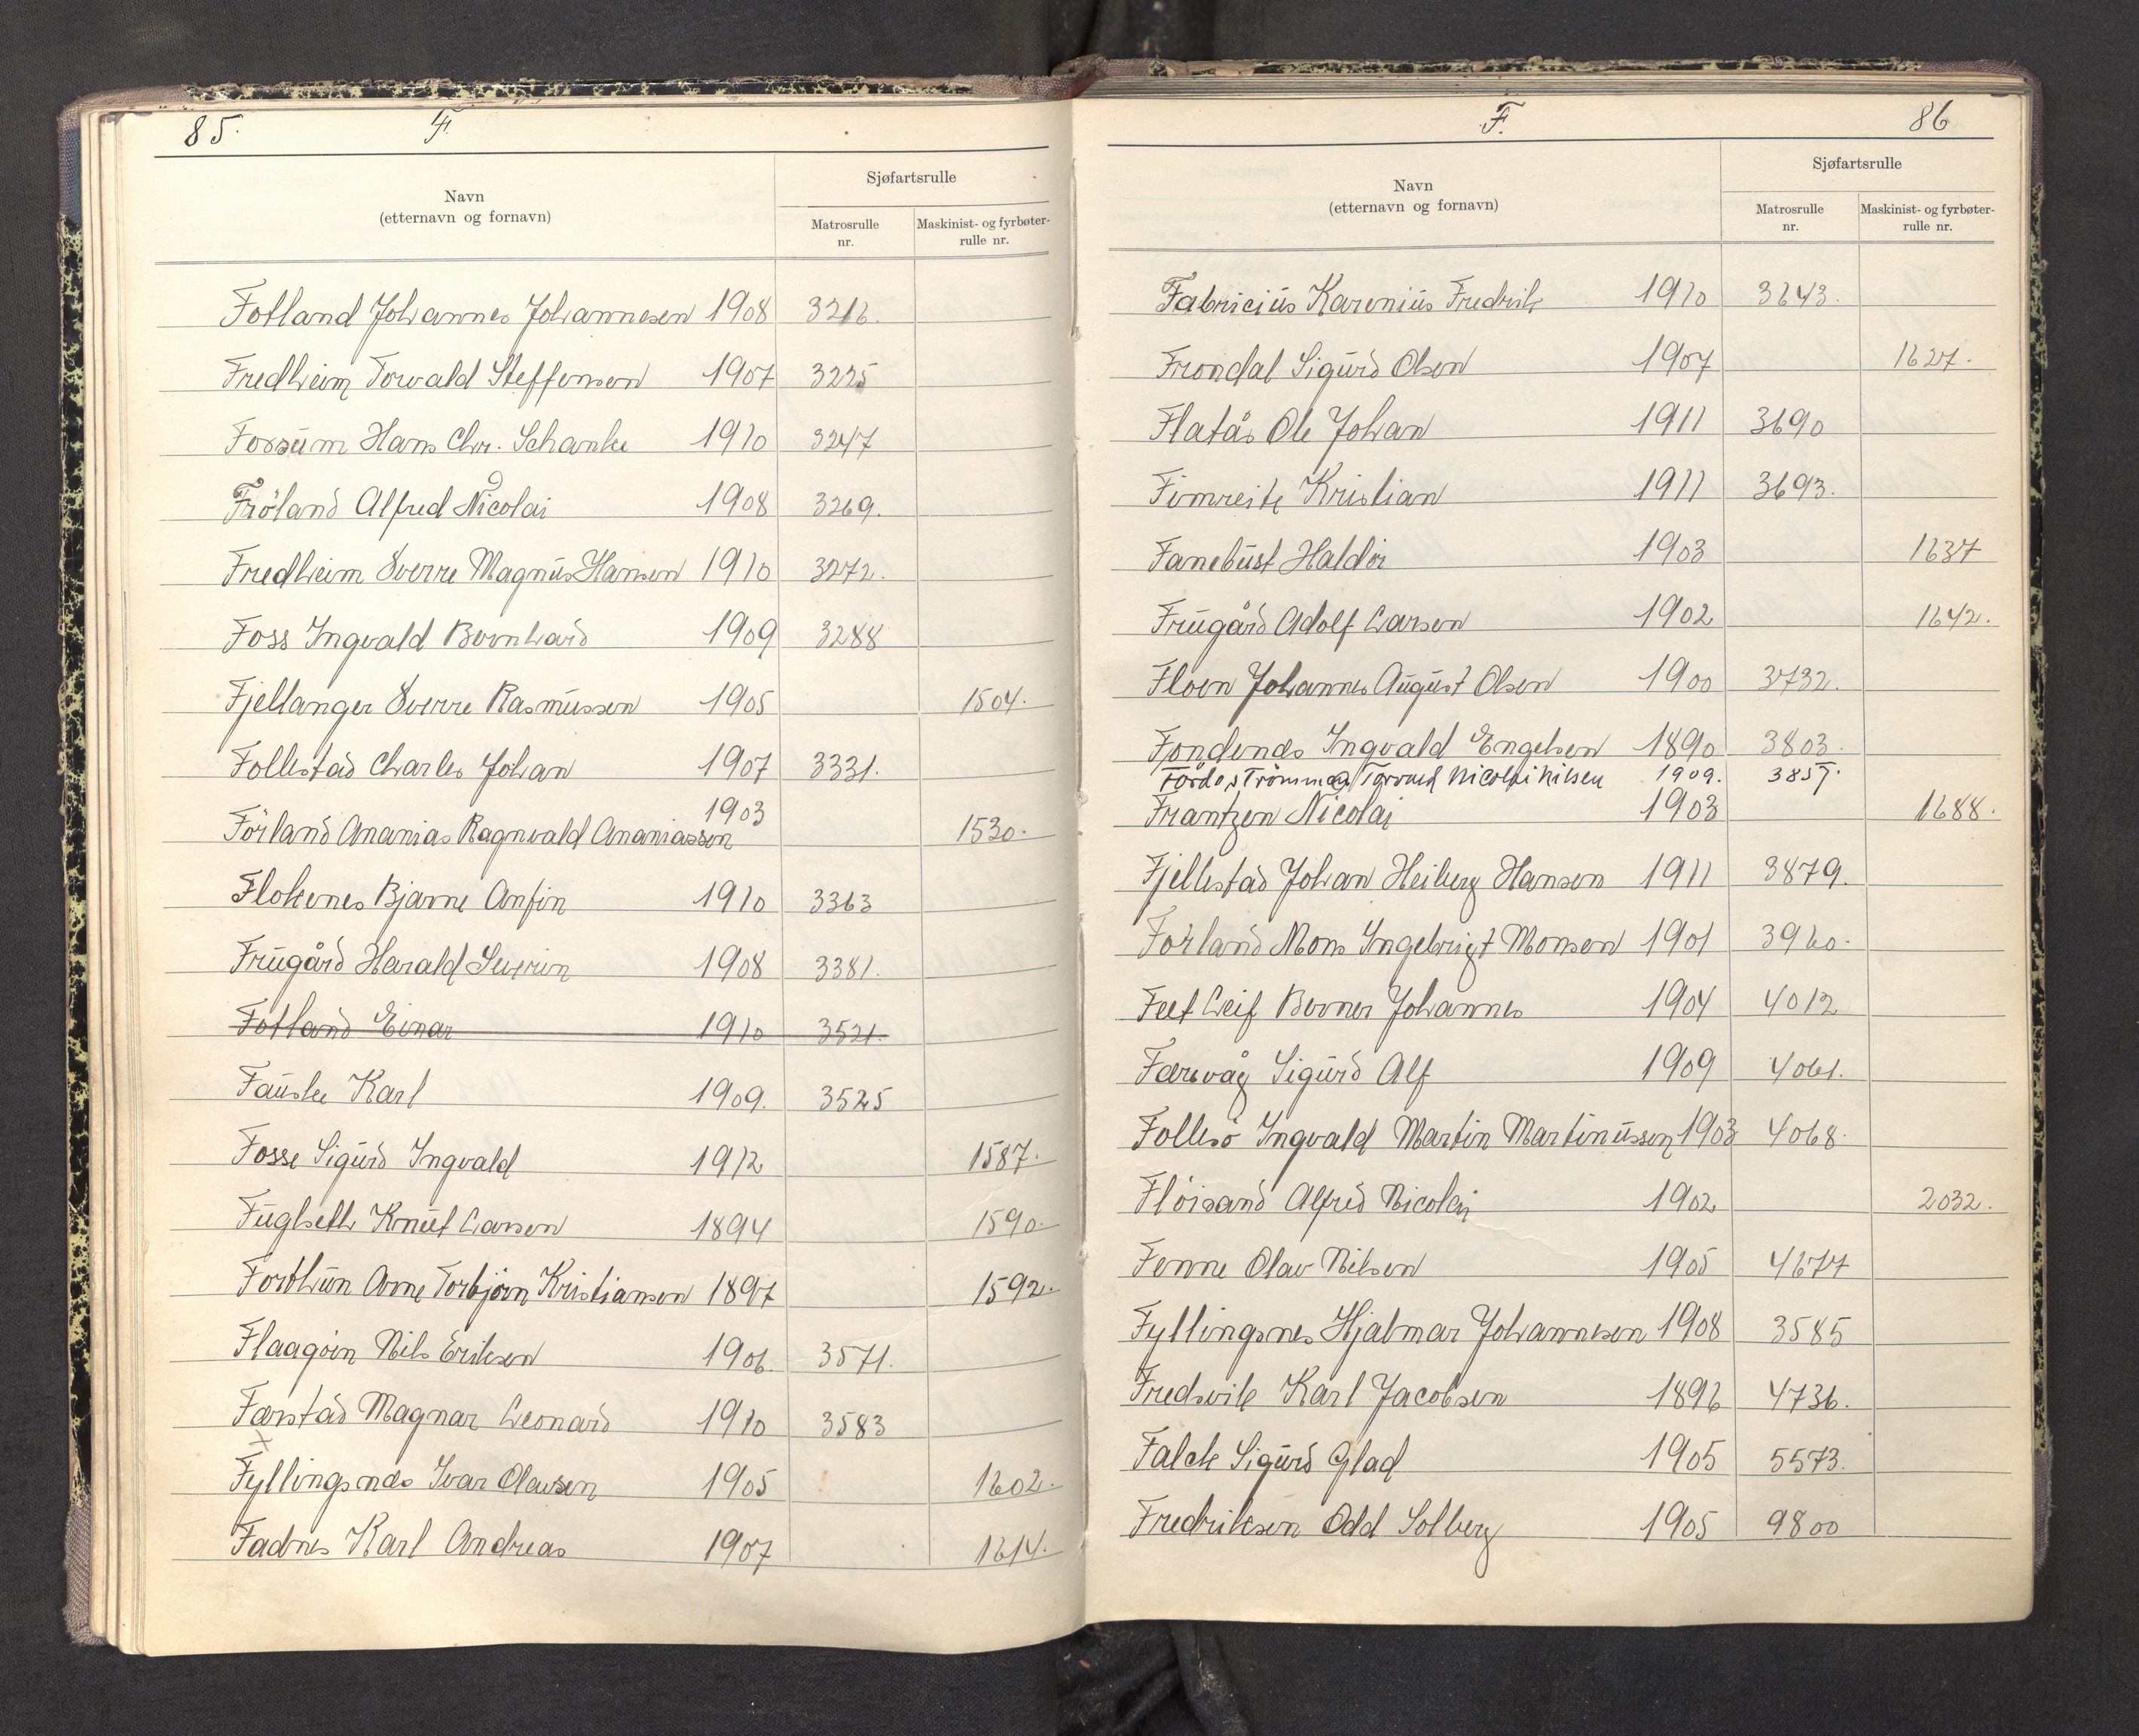 85.
F.
Navn
(etternavn og fornavn)
Sjøfartsrulle
Matrosrulle
nr.
Maskinist- og fyrbøter-
rulle nr.
Fotland Johannes Johannesen 1908 3216.
Fredheim Torvald Steffensen 1907 3225
Forsum Hans Chr. Schanke 1910 3247
Fröland Alfred Nicolai 1908 3269.
Fredheim Sverre Magnus Hansen 1910 3272.
Foss Ingvald Bernhard 1909 3288
Fjellanger Sverre Rasmussen 1905 1504.
Follestad Charles Johan 1907 3331.
1903
Förland Ananias Ragnvald Ananiassen 1530.
Flokenes Bjarne Anfin 1910 3363
Frugård Harald Severin 1908 3381.
Fotland Einar 1910 3521.
Fauske Karl 1909. 3525
Fosse Sigurd Ingvald 1912 1587.
Fuglseth Knut Larsen 1894 1590.
Forthun Arne Torbjörn Kristiansen 1897 1592.
Flaagöin Nils Eriksen 1906. 3571.
Færstad Magnar Leonard 1910 3583
Fyllingsnes Ivar Olausen 1905 1602.
Fadnes Karl Andreas 1907 1614.
F.
86
Navn
(etternavn og fornavn)
Sjøfartsrulle
Matrosrulle
nr.
Maskinist- og fyrbøter-
rulle nr.
Fabricius Karenius Fredrik 1910 3643.
Frondal Sigurd Olsen 1907 1627.
Flatås Ole Johan 1911 3690
Fimreite Kristian 1911 3693.
Fanebust Haldor 1903 1637
Frugård Adolf Larsen 1902 1642.
Floen Johannes August Olsen 1900 3732.
Fondenes Ingvald Engelsen 1890 3803.
Torvald Nicolai Nilsen 1909. 3857.
Frantzen Nicolai 1903 1688.
Fjellestad Johan Heiberg Hansen 1911 3879.
Forland Mons Ingebrigt Monsen 1901 3960.
Feet Leif Berner Johannes 1904 4012
Færevåg Sigurd Alf 1909 4061.
Follesö Ingvald Martin Martinussen 1903 4068.
Flöisand Alfred Nicolai 1902 2032.
Fenne Olav Nilsen 1905 4677
Fyllingsnes Hjalmar Johannesen 1908 3585
Fredsvik Karl Jacobsen 1896 4736.
Falck Sigurd Glad 1905 5573.
Fredriksen Odd Solberg 1905 9800